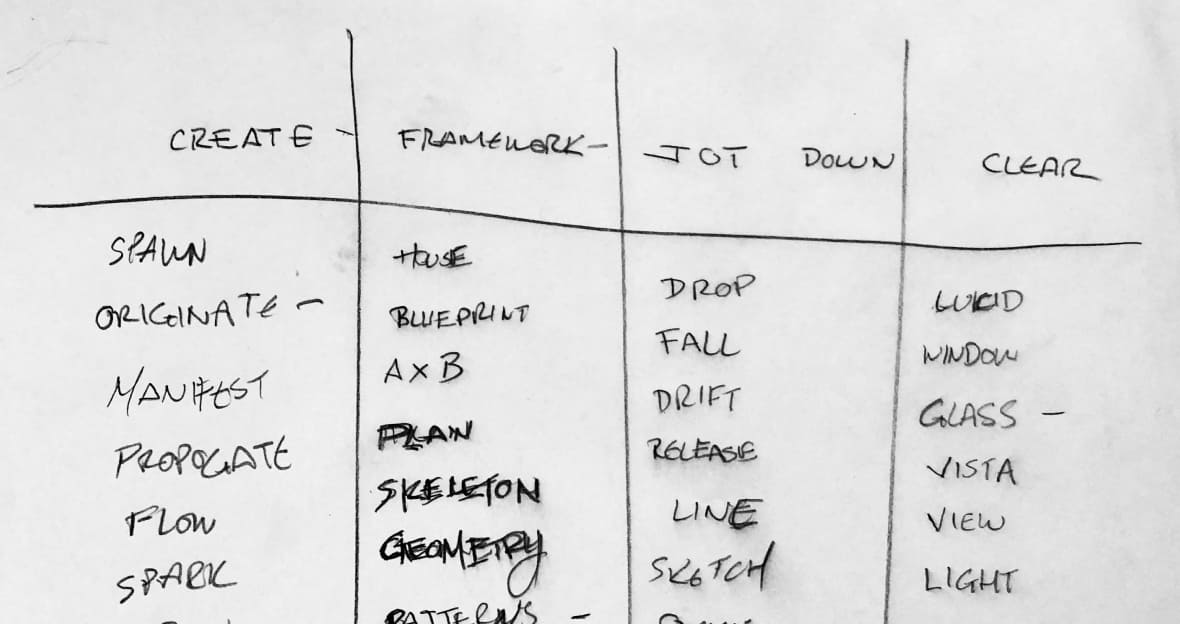 CREATE – FRAMEWORK – JOT DOWN CLEAR
SPAWN HOUSE DROP LUCID
ORIGINATE – BLUEPRINT FALL WINDOW
MANIFEST A x B DRIFT GLASS –
PROPOGATE PLAN RELEASE VISTA
FLOW SKELETON LINE VIEW
SPARK GEOMETRY SKETCH LIGHT
PATTERNS –